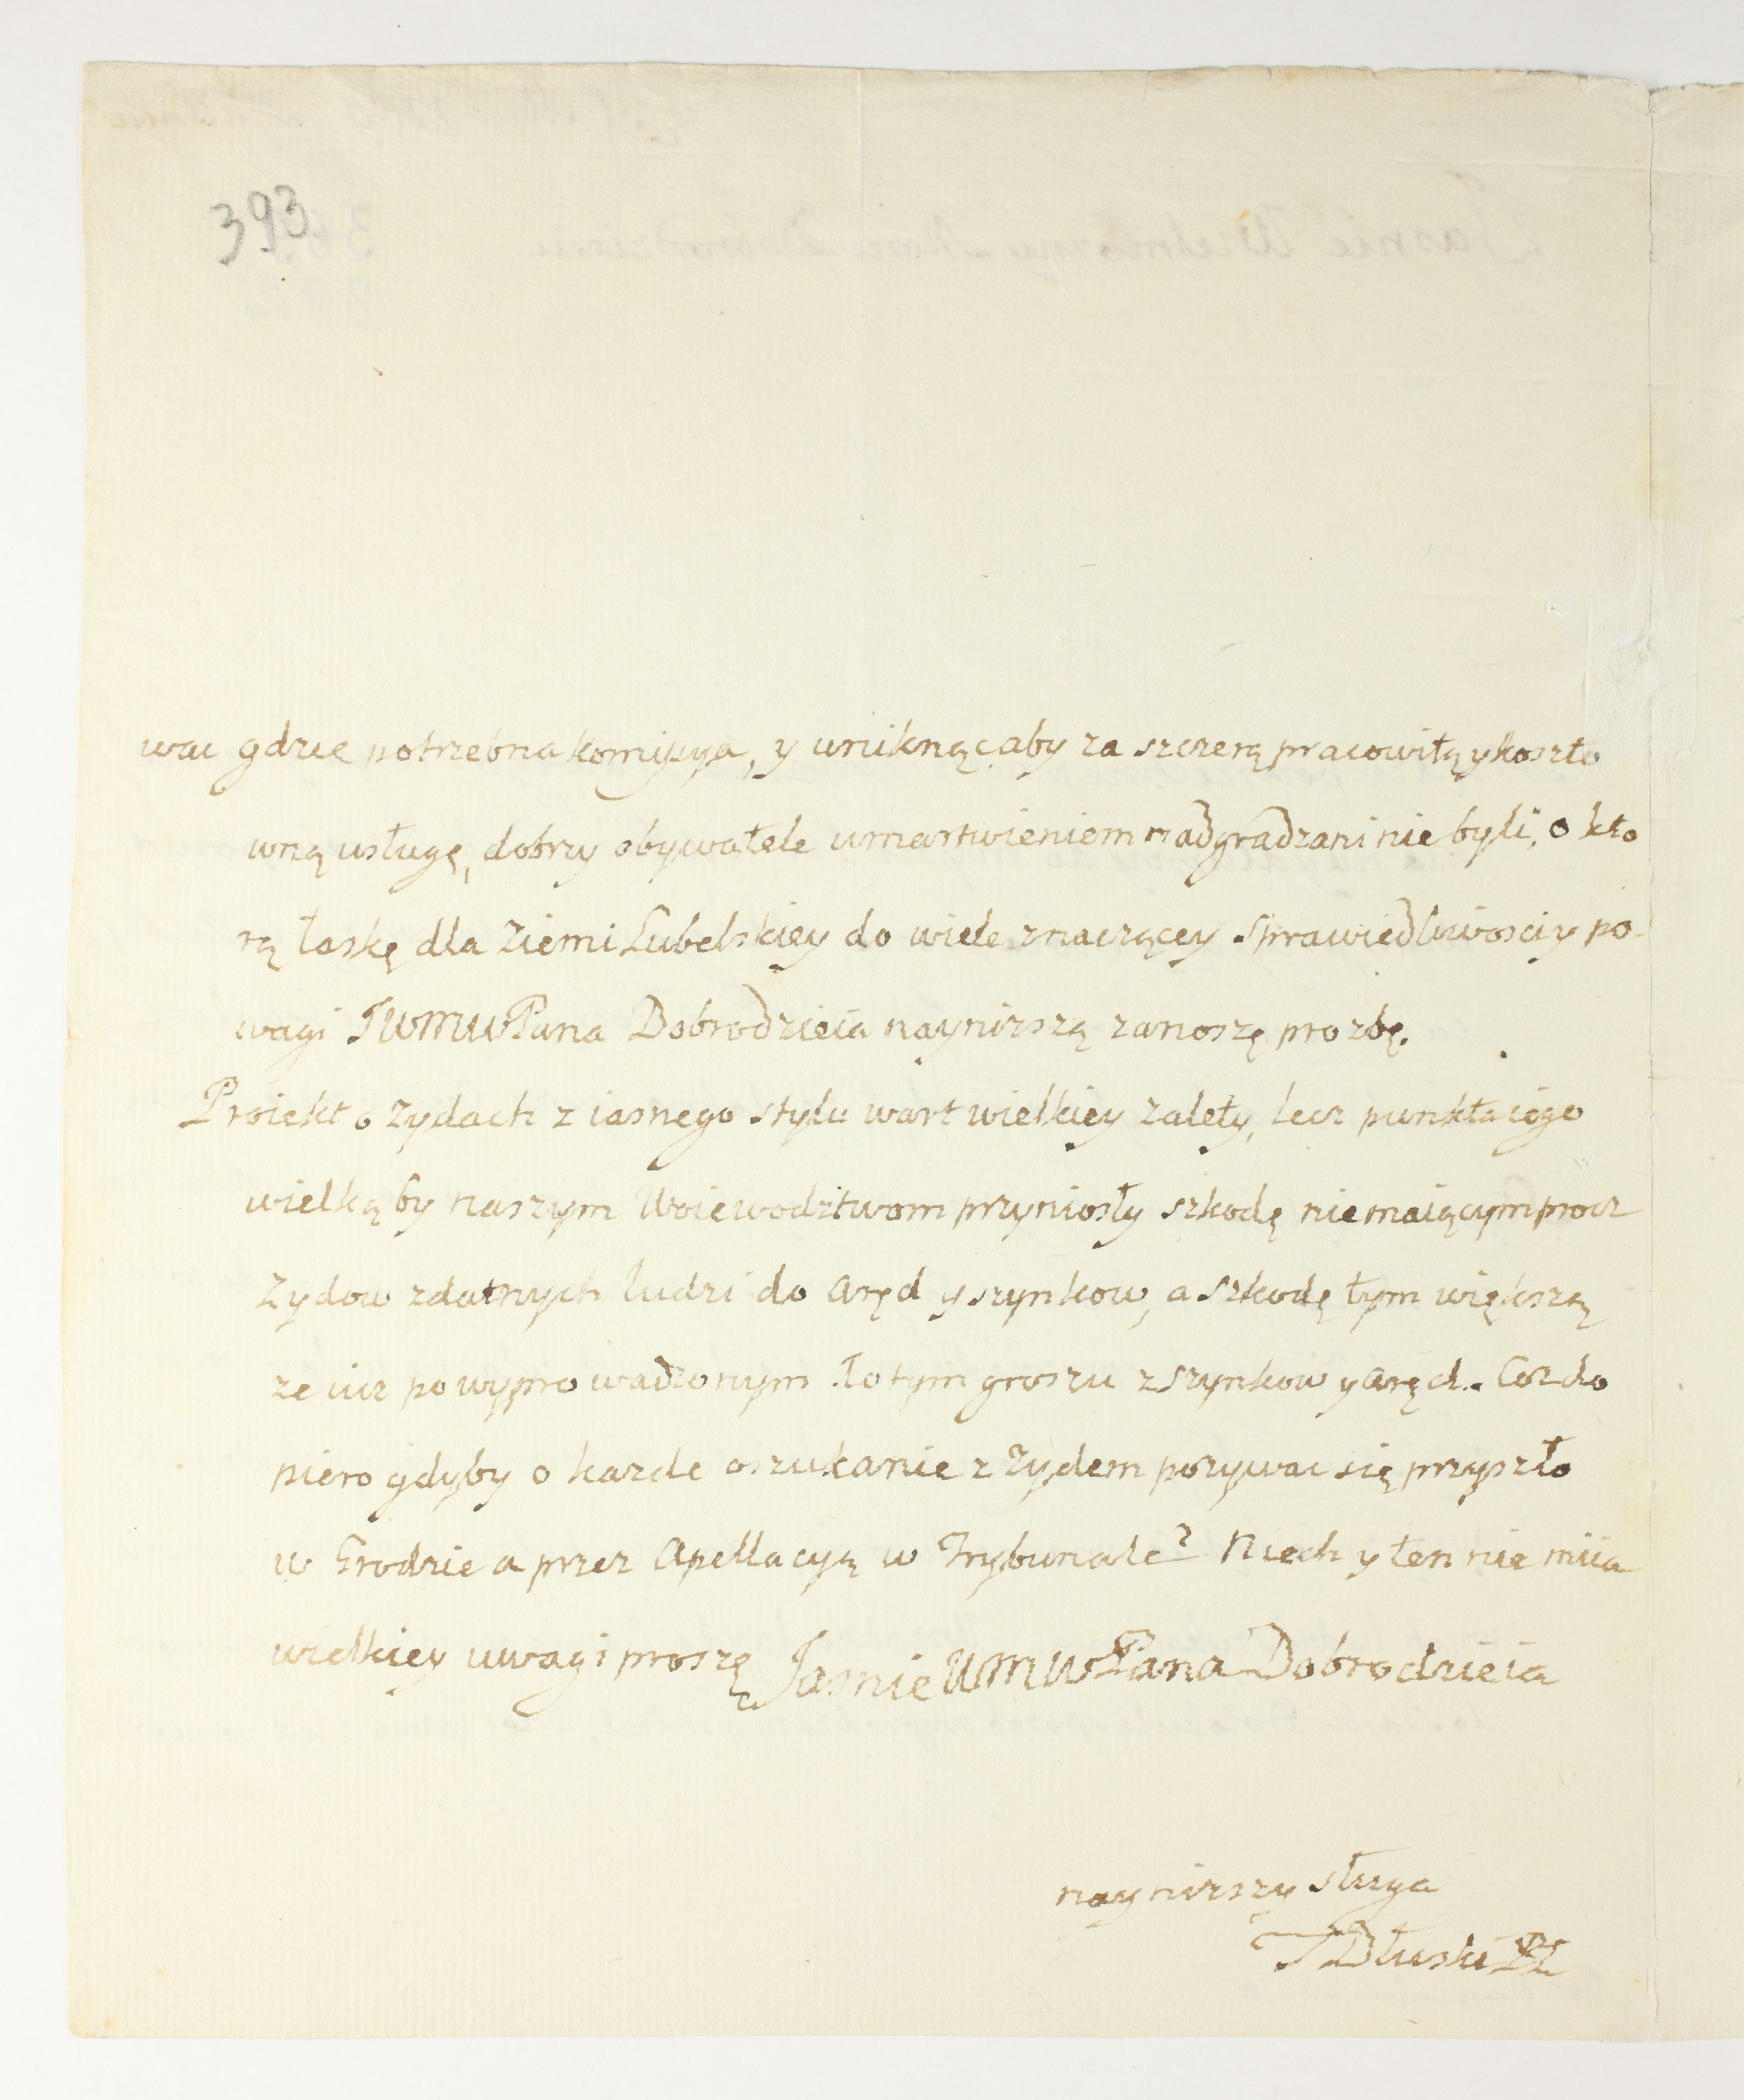 393
wac gdzie potrzebna komisyya, y uniknąc aby za szczerą pracowitą y koszto
wną usługę, dobrzy obywatele umartwieniem nadgradzani nie byli, o kto
rą łaskę dla Ziemi Lubelskiey do wiele znaczącey sprawiedliwosci y po
wagi JWMWPana Dobrodzieia naynizszą zanoszę prozbę.
Proiekt o Zydach z iasnego stylu wart wielkiey zalety, lecz punkta iego
wielką by naszym Woiewodztwom przyniosły szkodę nie maiącym procz
Zydow zdatnych ludzi do aręd y szynkow, a szkodę tym większą
ze iuz po wyprowadzonym 10tym groszu z szynkow y aręd. Coz do
piero gdyby o kazde oszukanie z Zydem pozywac się przyszło
w Grodzie a przez Apellacyą w Trybunale? Niech y ten nie miia
wielkiey uwagi proszę Jasnie WMWPana Dobrodzieia
naynizszy sługa
T Dłuski